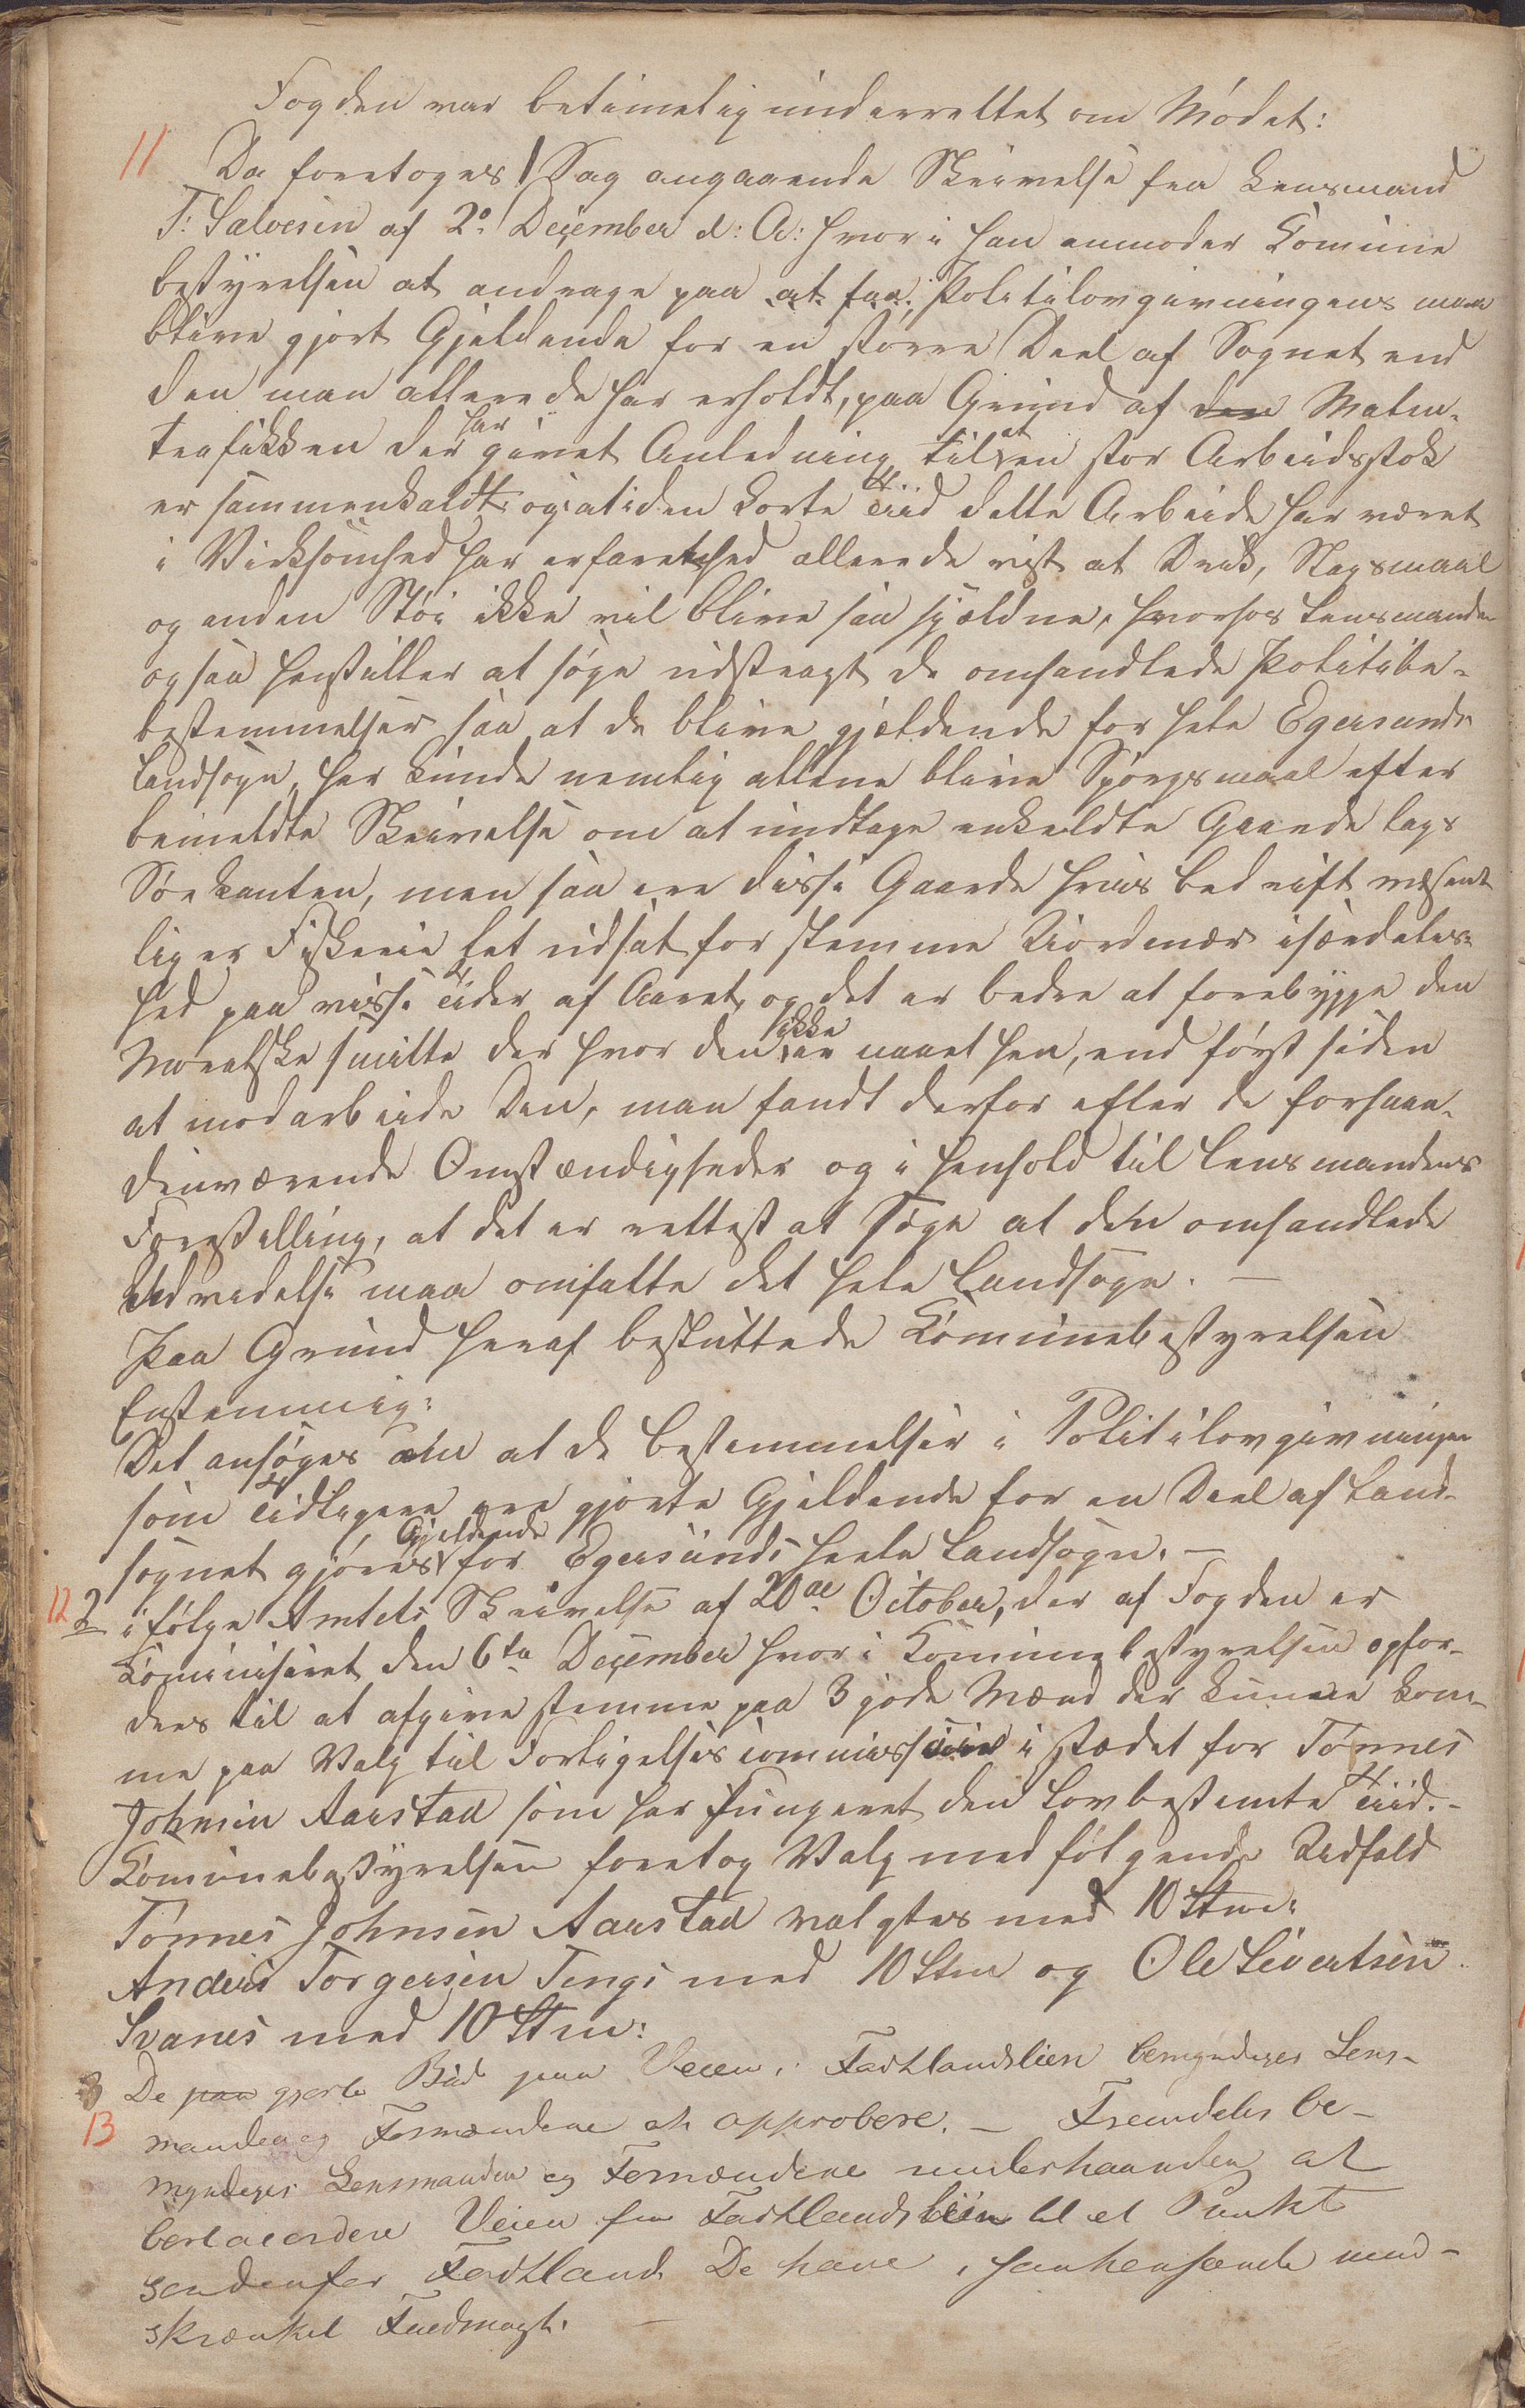 Fogden var betimelig underrettet om Mödet:
11 Da foretoges 1 Sag angaaende Skrivelse fra Lensmand
T: Salvesen af 2º December d: A: hvori han anmoder Komune
bestyrelsen at andrage paa at faa: Politilovgivningens maa
blive gjort Gjeldende for en större Deel af Sognet end
den man allerede har erholdt, paa Grund af den Malm-
trafikken der har givet Anledning til at en stor Arbeidsstok
er sammenkaldt og at i den korte Tiid dette Arbeide har været
i Virksomhed har erfarethed allerede vist at Druk, Slagsmaal
og anden Stöi ikke vil blive saa sjældne, hvorfor Lensmanden
ogsaa henstiller at söge udstragt de omhandlede Politibe-
bestemmelser saa at de blive gjeldende for hele Egersunds
Landsogn, her kunde nemlig allene blive Spörgsmaal efter
bemeldte Skrivelse om at undtage enkeldte Gaarde lags
Söekanten, men saa ere disse Gaarde hvis bedrift væsent
lig er Fiskerie let udsat for slemme Uordener isærdeles-
hed paa visse Tider af Aaret, og det er bedre at forebygge den
Moralske smitte der hvor den ikke er naaet hen, end först siden
at modarbeide Den, man fandt derfor efter de forhaan-
denværende Omstændigheder og i Henhold til Lensmandens
Forestilling, at det er rettest at söge at den omhandlede
Udvidelse maa omfatte det hele Landsogn. —
Paa Grund heraf besluttede Komunebestyrelsen
Enstemmig:
Det ansöges om at de bestemmelser i Politilovgivningen
som Tidligere ere gjorte Gjeldende for en Deel af Land-
sognet gjöres Gjeldende for Egersunds heele Landsogn. —
12 2 ifölge Amtets Skrivelse af 20de October, der af Fogden er
Comuniseret den 6te December hvori Komunebestyrelsen opfor-
dres til at afgive stemme paa 3 gode Mænd der kunne kom-
me paa Valg til Forligelsescommission i stædet for Tönnes
Johnsen Aarstad som har fungeret den Lovbestemte Tiid. -
Komunebestyrelsen foretog Valg med fölgende Udfald
Tönnes Johnsen Aarstad valgtes med 10 Stm:
Anders Torgersen Tengs med 10 Stm og Ole Sivertsen
Svanes med 10 Stm:
3 De paa gjorte Bud paa Veien i Fadtlandslien bemyndiges Lens-
13 manden og Formændene at approbere. — Fremdeles be-
myndiges Lensmanden og Formændene underhaanden at
bortaccordere Veien fra Fadtlandslien til et Punkt
søndenfor Fadtland De have i saahenseende uind-
skrænket Fuldmagt. —